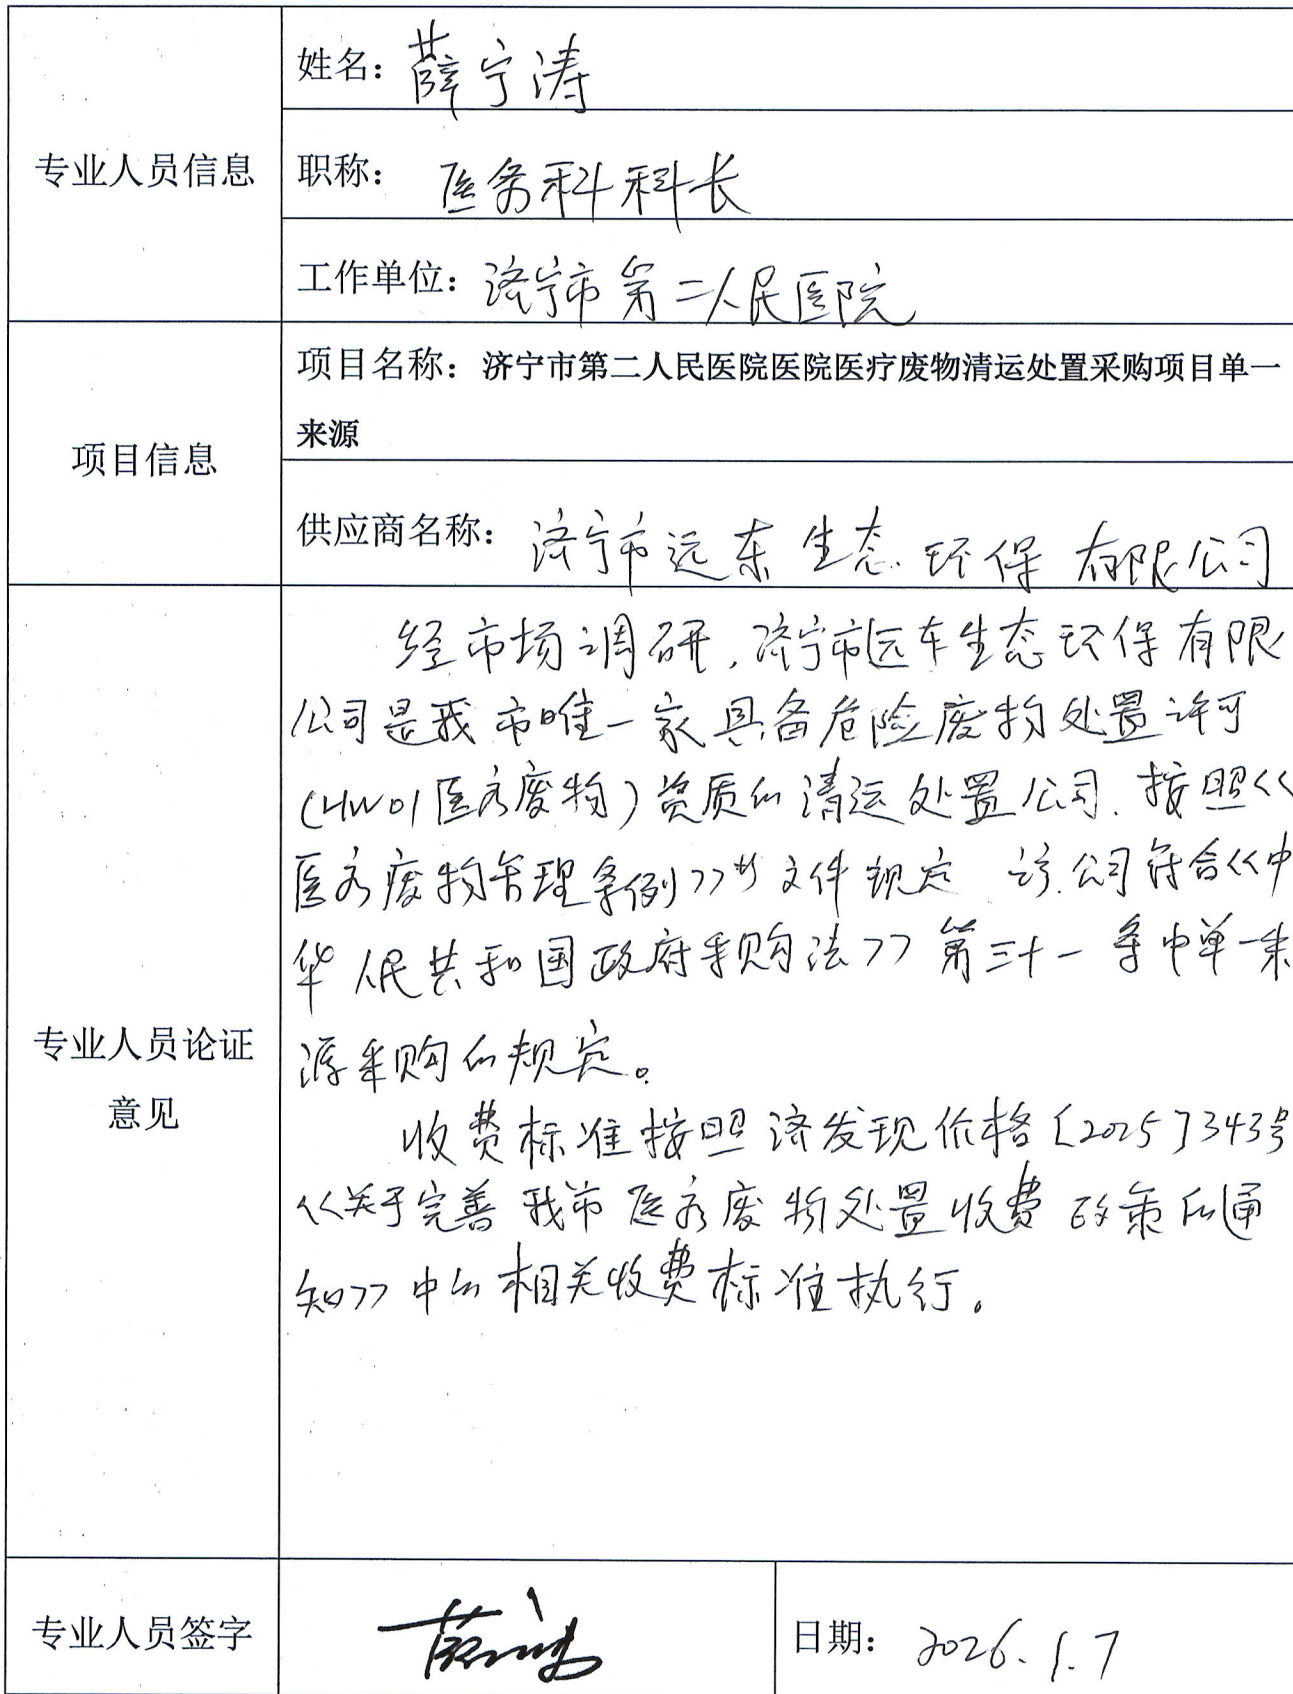 专业人员信息
姓名：薛宁涛
职称：医务科科长
工作单位：济宁市第二人民医院
项目信息
项目名称：济宁市第二人民医院医院医疗废物清运处置采购项目单一
来源
供应商名称：济宁市远东生态环保有限公司
专业人员论证
意见
经市场调研，济宁市远东生态环保有限
公司是我市唯一一家具备危险废物处置许可
(HW01医疗废物)资质的清运处置公司.按照<<
医疗废物管理条例>>等文件规定 该公司符合<<中
华人民共和国政府采购法>>第三十一条中单一来
源采购的规定。
收费标准按照济发现价格〔2025〕343号
<<关于完善我市医疗废物处置收费政策的通
知>>中的相关收费标准执行。
专业人员签字
薛宁涛
日期：2026.1.7